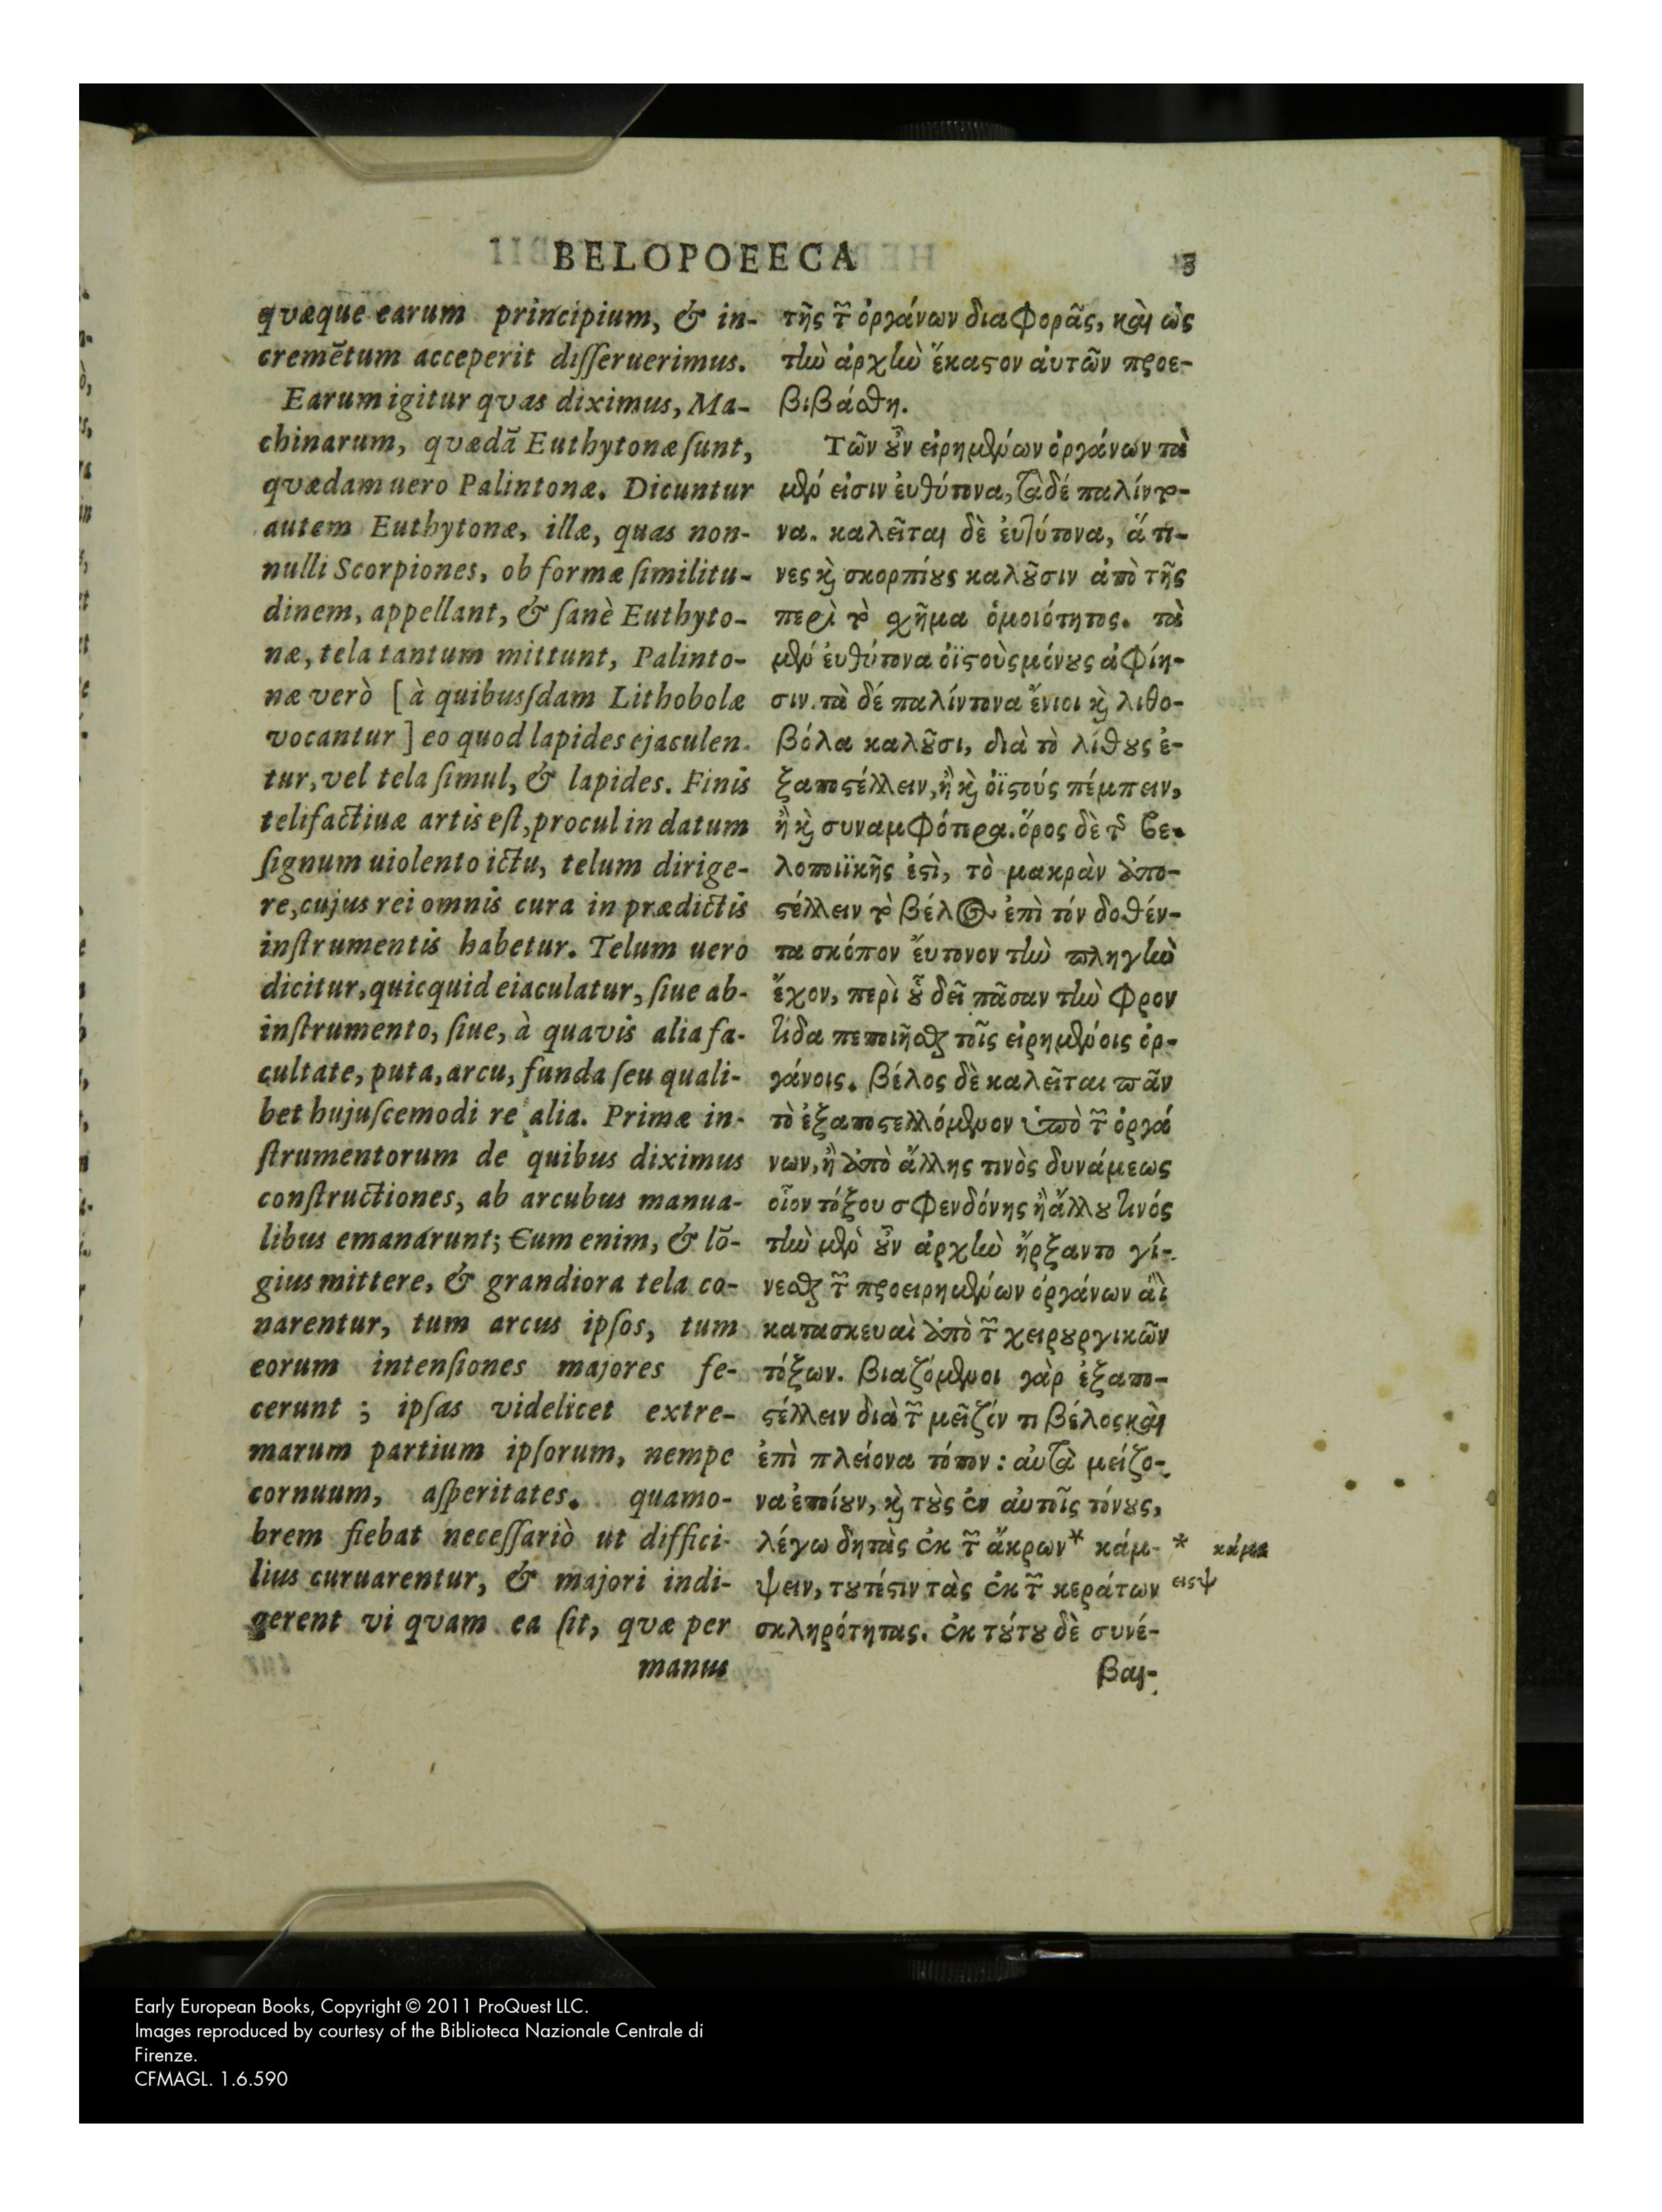 BELOPOEECA
3
quæque earum principium, & in-
cremẽtum acceperit disseruerimus.
Earum igitur quas diximus, Ma-
chinarum, quædã Euthytonæ sunt,
quædam uero Palintonæ. Dicuntur
autem Euthytonæ, illæ, quas non-
nulli Scorpiones, ob formæ similitu-
dinem, appellant, & sanè Euthyto-
næ, tela tantum mittunt, Palinto-
næ verò [à quibusdam Lithobolæ
vocantur] eo quod lapides ejaculen-
tur, vel tela simul, & lapides. Finis
telifactiuæ artis est, procul in datum
signum uiolento ictu, telum dirige-
re, cujus rei omnis cura in prædictis
instrumentis habetur. Telum uero
dicitur, quicquid eiaculatur, siue ab-
instrumento, siue, à quavis alia fa-
cultate, puta, arcu, funda seu quali-
bet hujuscemodi re alia. Primæ in-
strumentorum de quibus diximus
constructiones, ab arcubus manua-
libus emanárunt; Eum enim, & lõ-
gius mittere, & grandiora tela co-
narentur, tum arcus ipsos, tum
eorum intensiones majores fe-
cerunt ; ipsas videlicet extre-
marum partium ipsorum, nempe
cornuum, asperitates. quamo-
brem fiebat necessariò ut diffici-
lius curuarentur, & majori indi-
gerent vi quam ea sit, quæ per
manus
τῆς τ͂ ὀργάνων διαφορᾶς, καὶ ὡς
τὴν ἀρχὴν ἕκαϛον ἀυτῶν προε-
βιβάσθη.
Τῶν ȣ̓͂ν εἰρημένων ὀργάνων τὰ
μέν εἰσιν ἐυθύτονα, τὰ δέ παλίντο-
να. καλεῖται δὲ ἐυθύτονα, ἅ τι-
νες κὶ σκορπίȣς καλȣ͂σιν ἀπὸ τῆς
περὶ τὸ σχῆμα ὁμοιότητος. τὰ
μέν ἐυθύτονα ὀϊϛοὺς μόνȣς ἀφίη-
σιν. τὰ δέ παλίντονα ἔνιοι κὶ λιθο-
βόλα καλȣ͂σι, διὰ τὸ λίθȣς ἐ-
ξαποϛέλλειν, ἢ κὶ ὀϊϛούς πέμπειν,
ἢ κὶ συναμφότερα. ὅρος δὲ τ͂ βε-
λοποιϊκῆς ἐϛὶ, τὸ μακρὰν ἀπο-
ϛέλλειν τὸ βέλος ἐπὶ τόν δοθέν-
τα σκόπον ἔυτονον τὴν πληγὴν
ἔχον, περὶ ȣ̔͂ δεῖ πᾶσαν τὴν φρον
τίδα πεποιῆσθαι τοῖς εἰρημένοις ὀρ-
γάνοις. βέλος δὲ καλεῖται πᾶν
τὸ ἐξαποϛελλόμενον ὑπὸ τ͂ ὀργά
νων, ἢ ἀπὸ ἄλλης τινὸς δυνάμεως
οἷον τόξου σφενδόνης ἢ ἄλλȣ τινός
τὴν μὲν ȣ̓͂ν ἀρχὴν ἤρξαντο γί-
νεσθαι τ͂ προειρημένων ὀργάνων ἁὶ
κατασκευαὶ ἀπὸ τ͂ χειρȣργικῶν
τόξων. βιαζόμενοι γὰρ ἐξαπο-
ϛέλλειν διὰ τ͂ μεῖζόν τι βέλος καὶ
ἐπὶ πλείονα τόπον : αὐτὰ μείζο-
να ἐποίȣν, κὶ τȣ̀ς ἐν αὐτοῖς τόνȣς,
λέγω δη τὰς ἐκ τ͂ ἄκρων* κάμ-
ψειν, τȣτέϛιν τὰς ἐκ τ͂ κεράτων
σκληρότητας. ἐκ τȣ́τȣ δὲ συνέ-
βαι-
* κάμ
εισψ
Early European Books, Copyright © 2011 ProQuest LLC.
Images reproduced by courtesy of the Biblioteca Nazionale Centrale di
Firenze.
CFMAGL. 1.6.590